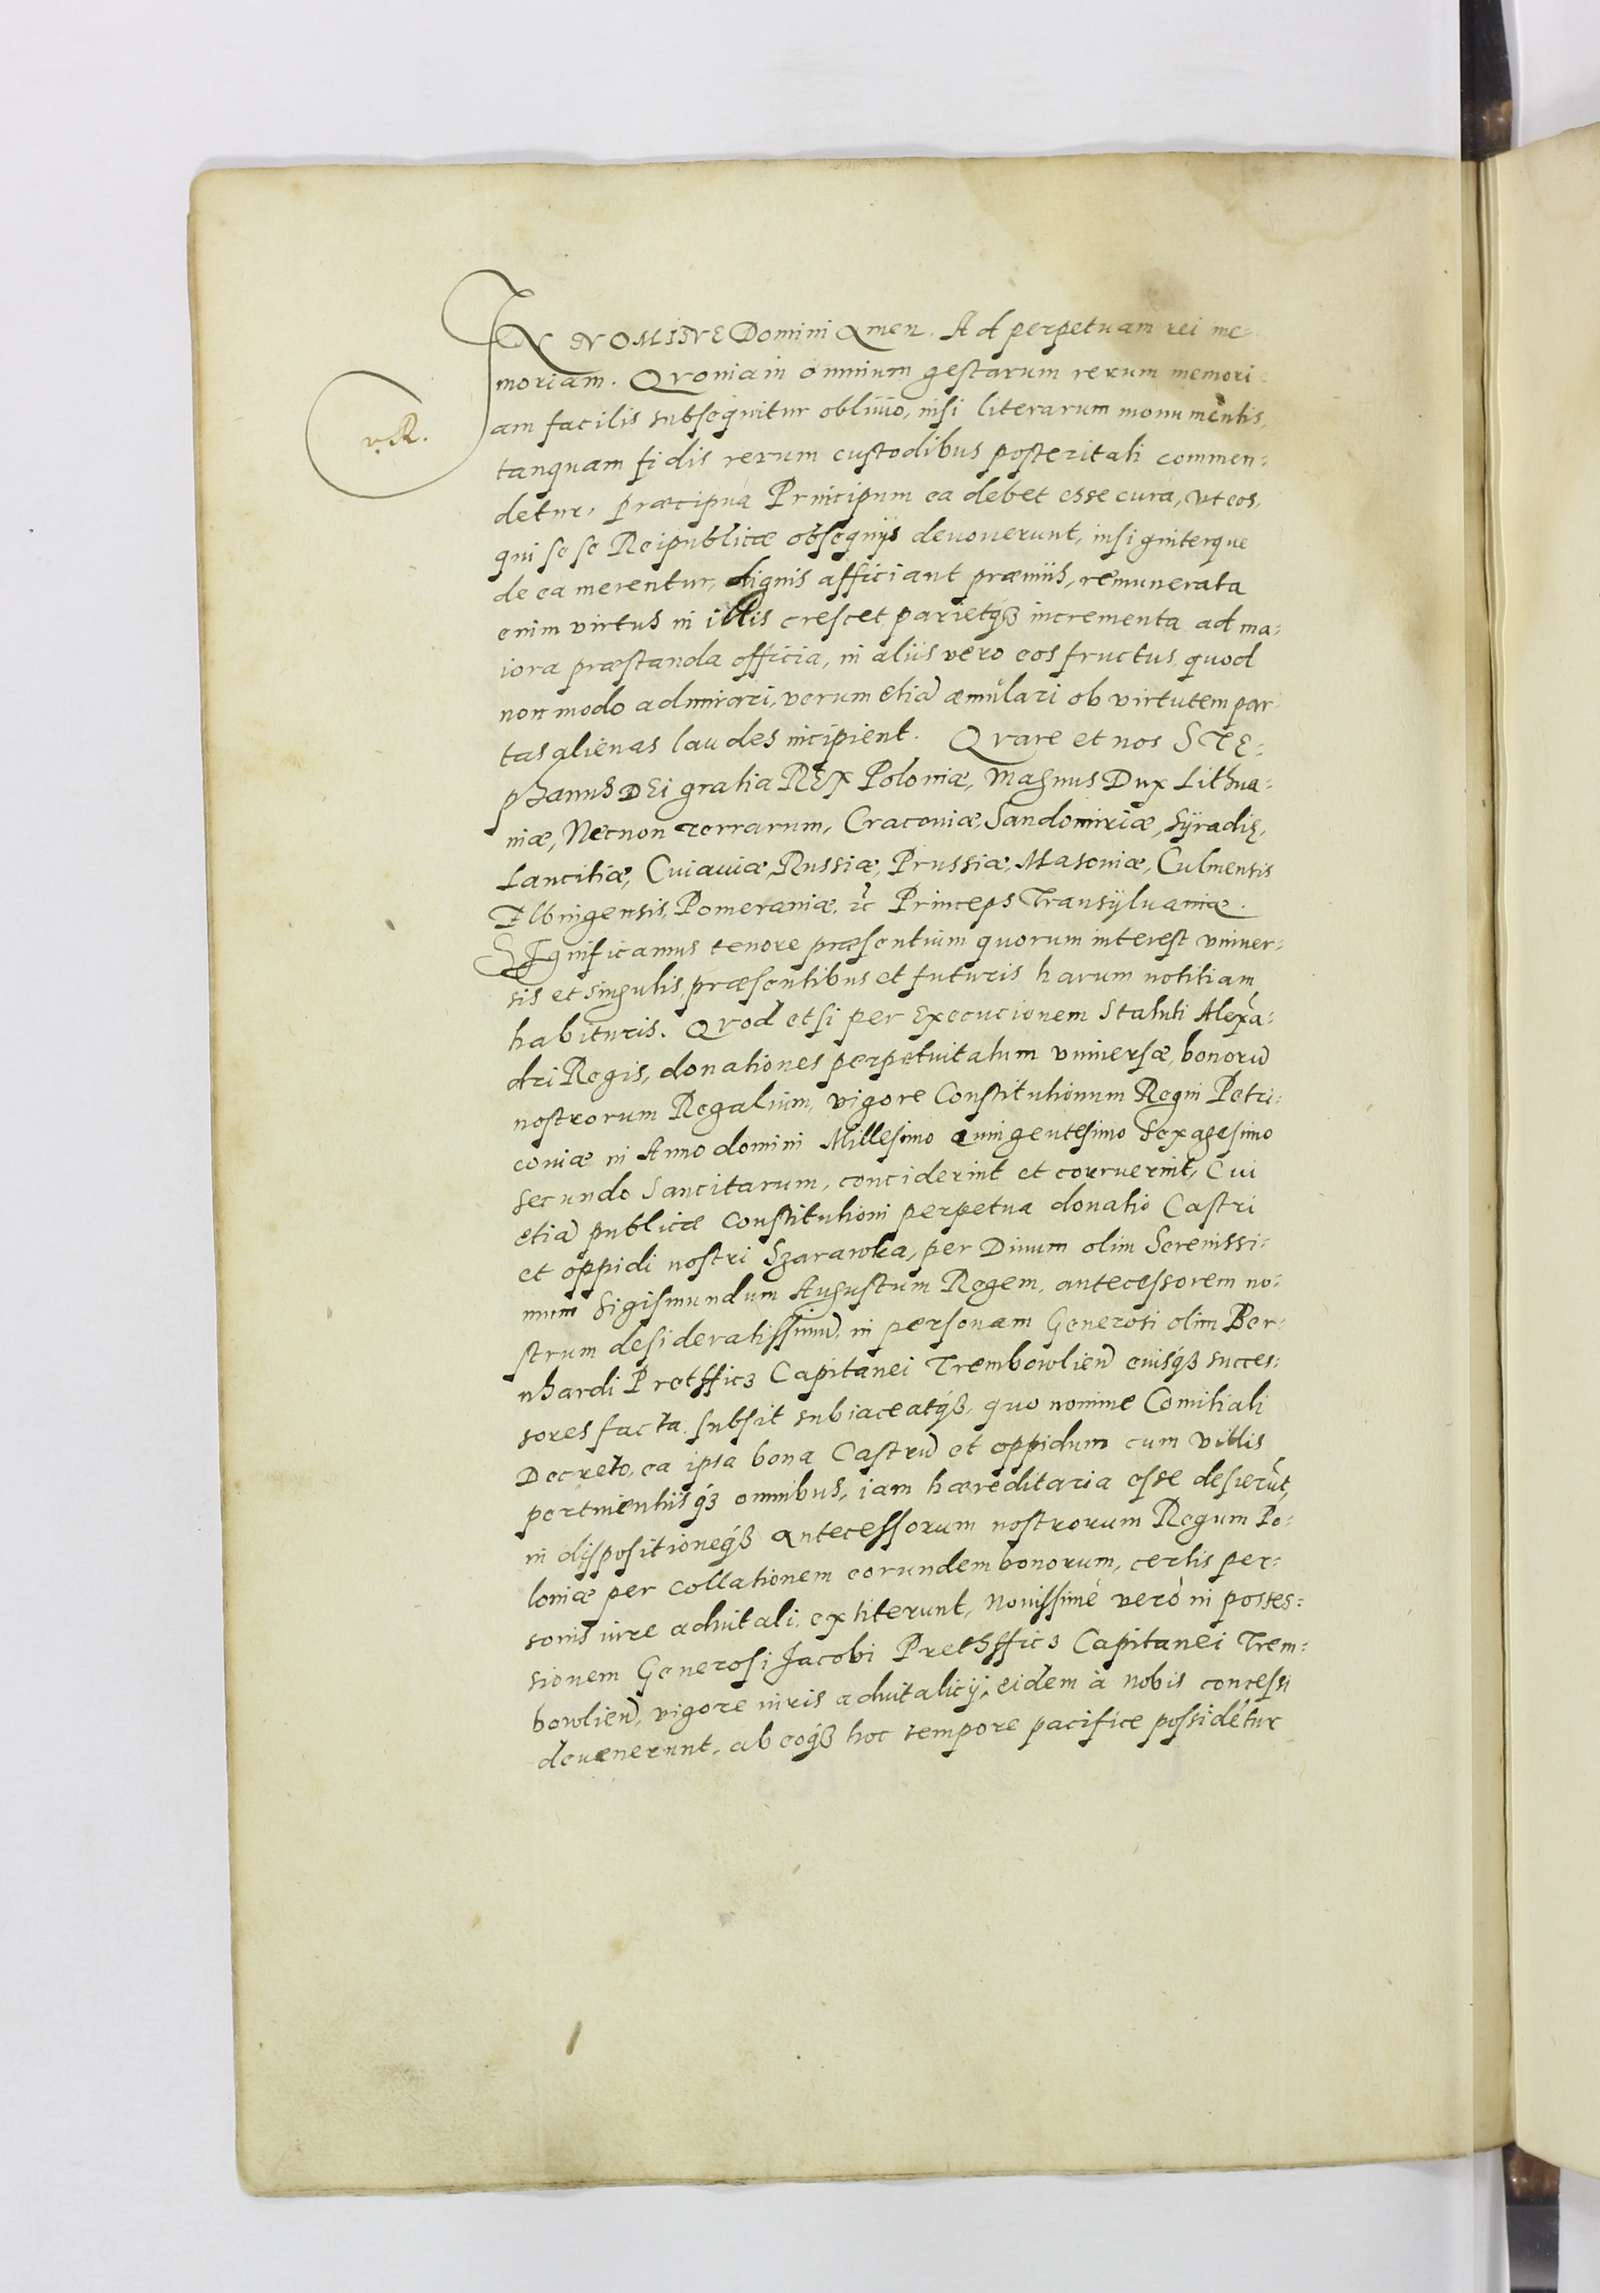 v. R.
IN NOMINE Domini Amen. Ad perpetuam rei me-
moriam. Qvoniam omnium gestarum rerum memori
am facilis subsequitur obliuio, nisi literarum monumentis,
tanquam fidis rerum custodibus posteritati commen-
detur, præcipua Principum ea debet esse cura, vt eos,
qui se se Reipublicæ obsequijs deuouerunt, insigniterque
de ea merentur, dignis afficiant præmiis, remunerata
enim virtus in illis crescet parietq́ꝫ incrementa ad ma-
iora præstanda officia, in aliis vero eos fructus, quod
non modo admirari, verum etiã æmulari ob virtutem par
tas alienas laudes incipient. Qvare et nos STE-
phanus DEi gratia REX Poloniæ, Magnus Dux Lithua-
niæ, Necnon terrarum, Cracouiæ, Sandomiriæ, Syradię,
Lancitiæ, Cuiauiæ, Russiæ, Prussiæ, Masouiæ, Culmensis
Elbingensis, Pomeraniæ, ꝛc̃ Princeps Transyluaniæ.
SIgnificamus tenore præsentium quorum interest vniuer-
sis et singulis, præsentibus et futuris harum notitiam
habituris. Qvod etsi per Execucionem Statuti Alexã-
dri Regis, donationes perpetuitatum vniuersæ, bonorũ
nostrorum Regalium, vigore Constitutionum Regni Petri-
couiæ in Anno domini Millesimo quingentesimo Sexagesimo
secundo Sancitarum, conciderint et corruerint, Cui
etiã publicæ Constitutioni perpetua donatio Castri
et oppidi nostri Szarawka, per Diuum olim Serenissi-
mum Sigismundum Augustum Regem, antecessorem no-
strum desideratissimũ, in personam Generosi olim Ber-
nhardi Pretfficz Capitanei Trembowlieñ eiusq́ꝫ succes-
sores facta, subsit subiaceatq́ꝫ, quo nomine Comitiali
Decreto, ea ipsa bona Castrũ et oppidum cum villis
pertinentiisq́ꝫ omnibus, iam hæreditaria esse desierũt,
in dispositioneq́ꝫ antecessorum nostrorum Regum Po-
loniæ per collationem eorundem bonorum, certis per-
sonis iure aduitali, extiterunt, Nouissimè verò in posses-
sionem Generosi Jacobi Prethfficz Capitanei Trem-
bowlieñ, vigore iuris aduitalicij, eidem à nobis concessi
deuenerunt, ab eoq́ꝫ hoc tempore pacifice possidẽtur